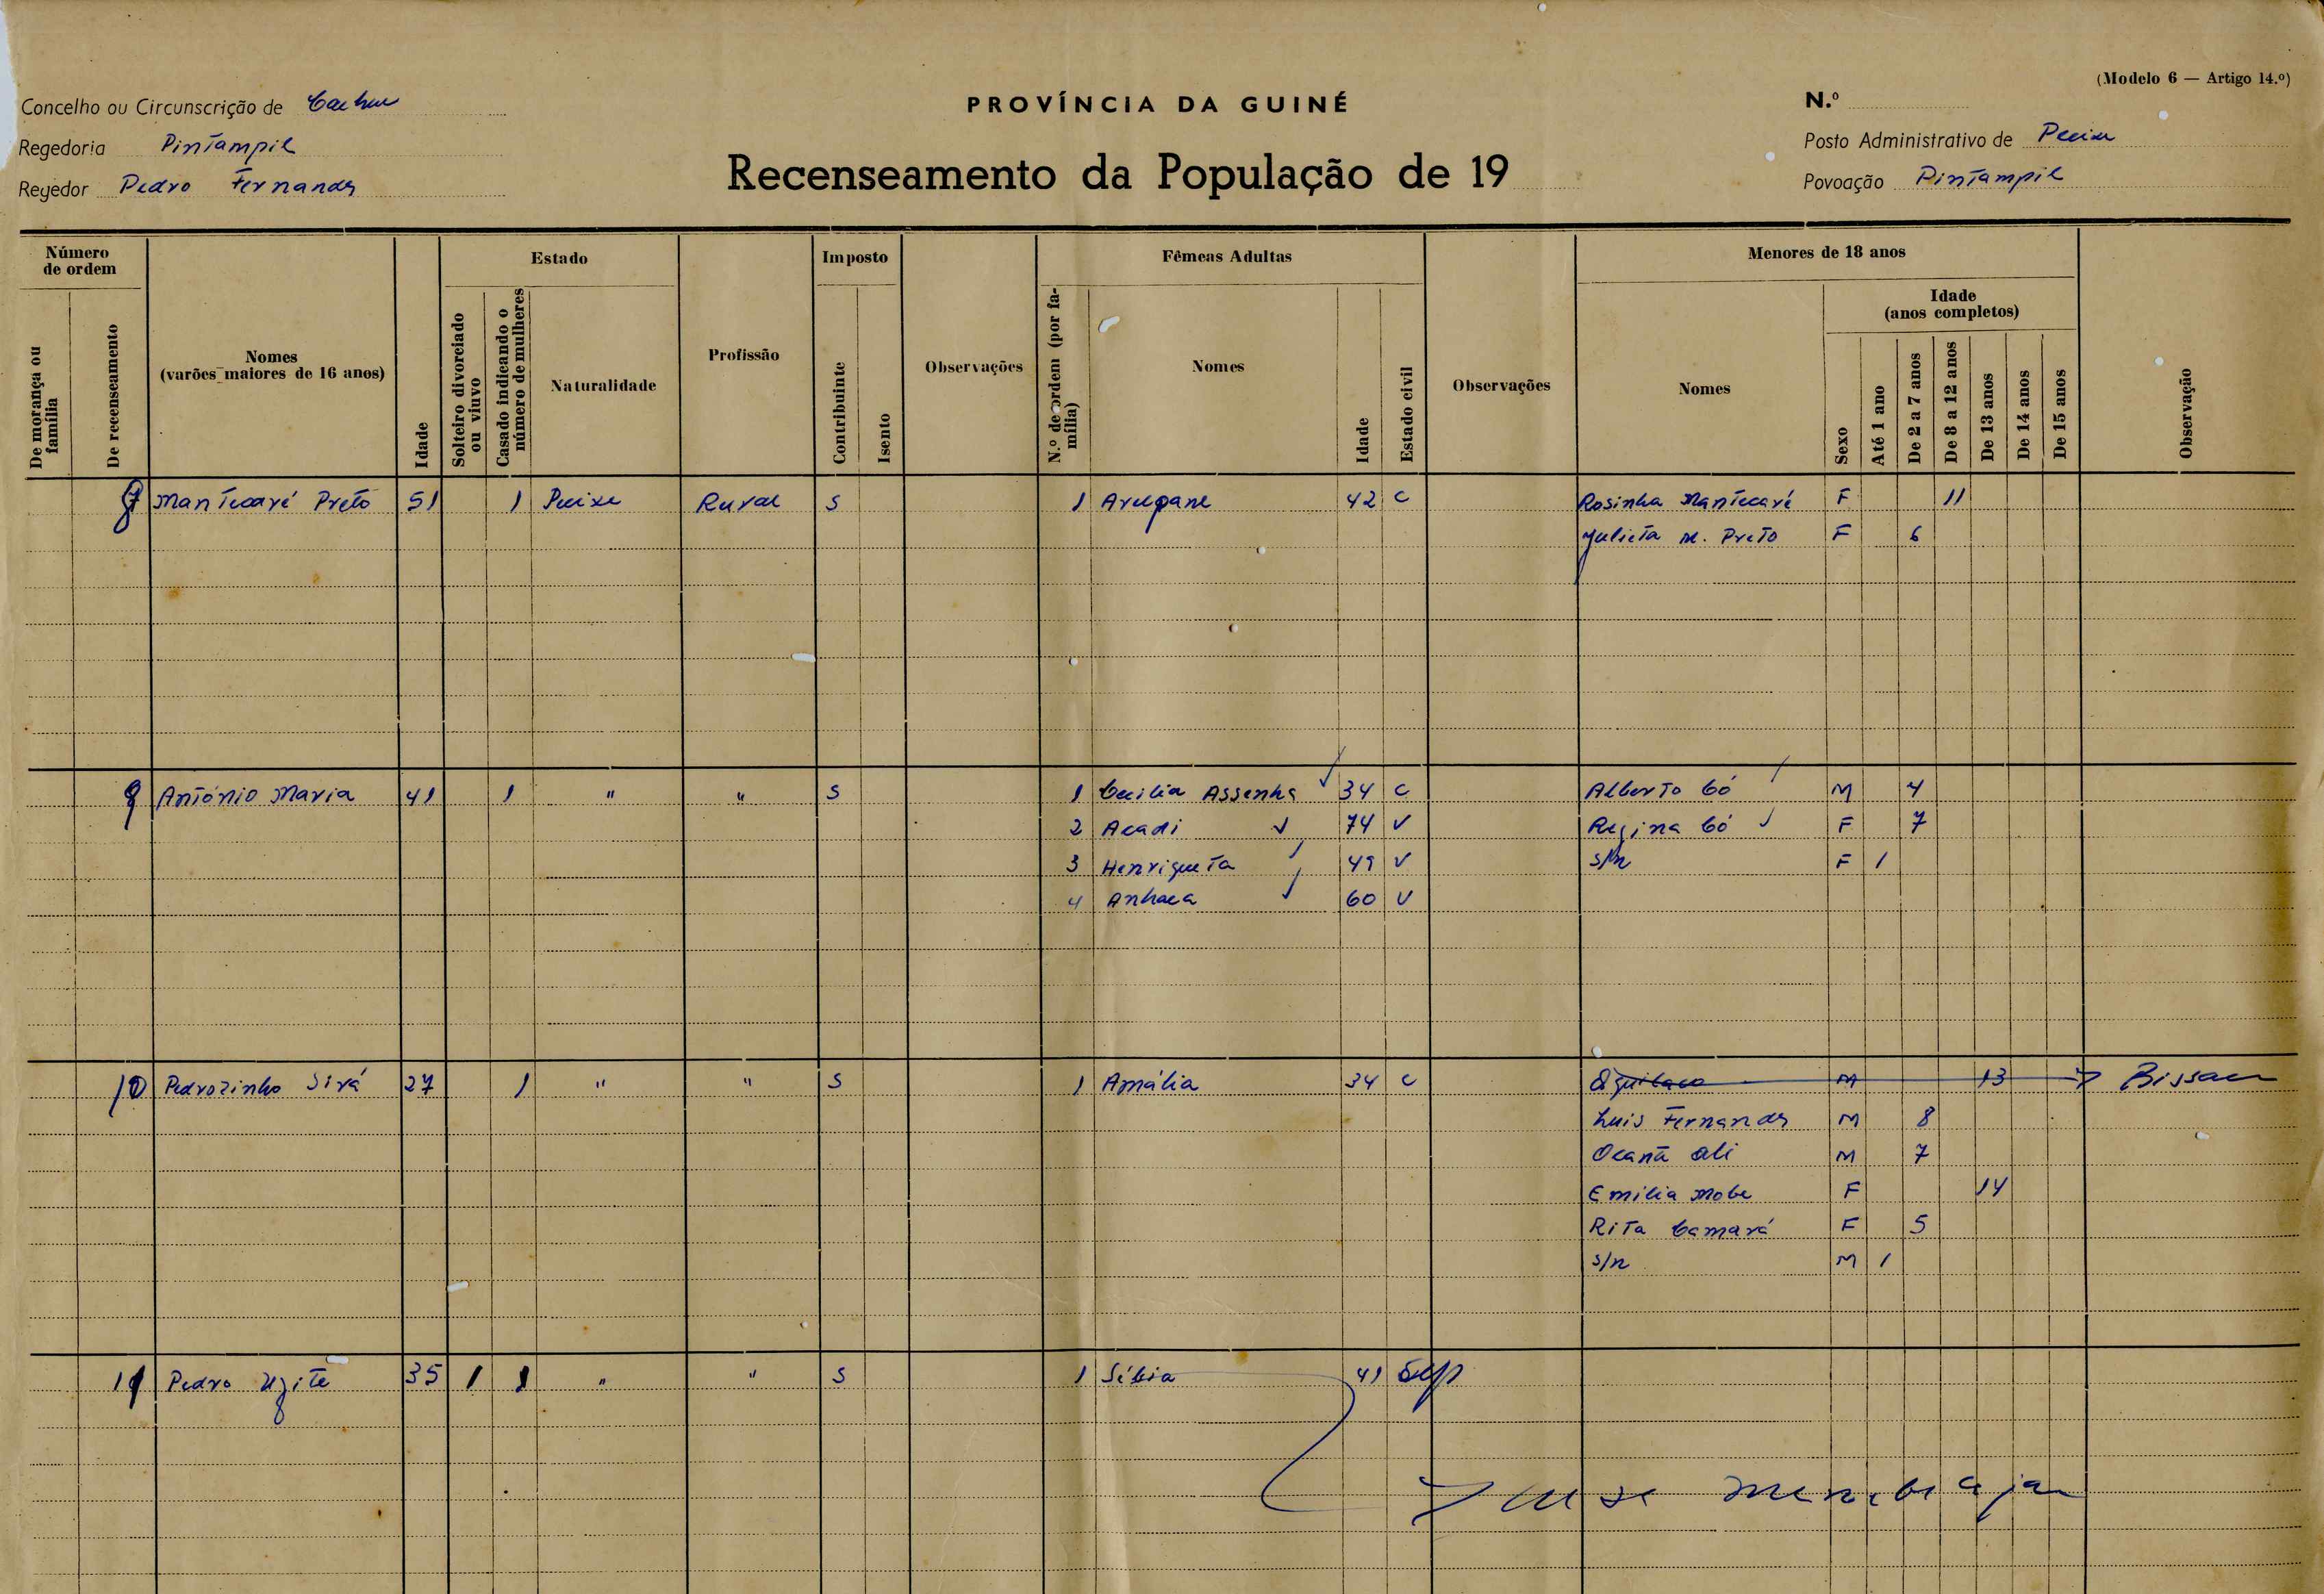 (Modelo 6 — Artigo 14.º)
Concelho ou Circunscrição de Cacheu
PROVÍNCIA DA GUINÉ
N.º
Regedoria Pintampil
Posto Administrativo de Pecixe
Regedor Pedro Fernandes
Recenseamento da População de 19
Povoação Pintampil
Número de ordem
De morança ou família
De recenseamento
Nomes (varões maiores de 16 anos)
Idade
Estado
Solteiro divorciado ou viuvo
Casado indicando o número de mulheres
Naturalidade
Profissão
Imposto
Contribuinte
Isento
Observações
Fêmeas Adultas
N.º de ordem (por família)
Nomes
Idade
Estado civil
Observações
Menores de 18 anos
Nomes
Idade (anos completos)
Sexo
Até 1 ano
De 2 a 7 anos
De 8 a 12 anos
De 13 anos
De 14 anos
De 15 anos
Observação
Mantecaré Preto 51 1 Pecixe Rural S 1 42 C Rosinha Mantecaré F 11
Julieta M. Preto F 6
9 António Maria 41 1 " " S 1 Cecilia Assenha 34 C Alberto Có M 4
2 Acadi 74 V Regina Có F 7
3 Henriqueta 49 V s/n F 1
4 Anhaca 60 V
10 Pedrozinho Sirá 27 1 " " S 1 Amália 34 C M 13 Bissau
Luis Fernandes M 8
Ocanã Ali M 7
Emilia Mobe F 14
Rita Camará F 5
s/n M 1
11 Pedro Ugite 35 1 1 " " S 1 Sábia 41